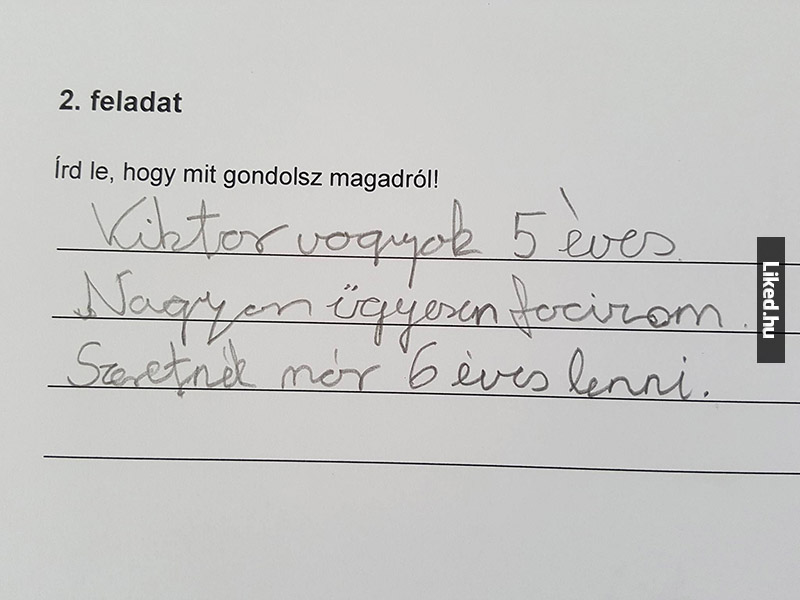 2. feladat
Írd le, hogy mit gondolsz magadról!
Viktor vagyok 5 éves.
Nagyon ügyesen focizom.
Szeretnék már 6 éves lenni.
Liked.hu